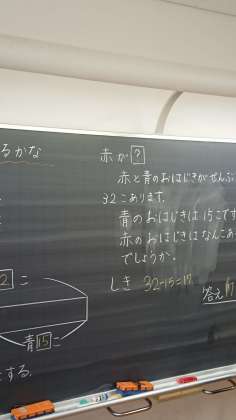 るかな
2 こ
青 15 こ
する.
赤が ?
赤と青のおはじきがぜんぶ
32 こあります.
青のおはじきは 15 こです
赤のおはじきはなんこあ
でしょうか.
しき 32-15=17
答え 17